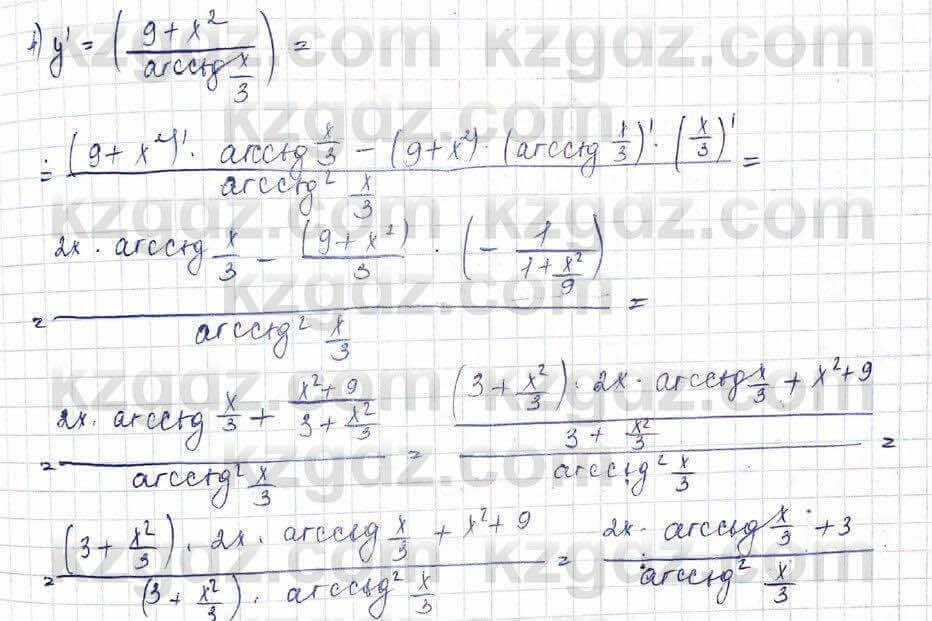 4) y' = ((9 + x²)/(arcctg x/3)) =
= ((9 + x²)' · arcctg x/3 − (9 + x²) · (arcctg x/3)' · (x/3)')/(arcctg² x/3) =
= (2x · arcctg x/3 − (9 + x²)/3 · (− 1/(1 + x²/9)))/(arcctg² x/3) =
= (2x · arcctg x/3 + (x² + 9)/(3 + x²/3))/(arcctg² x/3) = (((3 + x²/3) · 2x · arcctg x/3 + x² + 9)/(3 + x²/3))/(arcctg² x/3) =
= ((3 + x²/3) · 2x · arcctg x/3 + x² + 9)/((3 + x²/3) · arcctg² x/3) = (2x · arcctg x/3 + 3)/(arcctg² x/3)
kzgdz.com kzgdz.com
kzgdz.com
kzgdz.com kzgdz.com
kzgdz.com
kzgdz.com kzgdz.com
kzgdz.com
kzgdz.com kzgdz.com